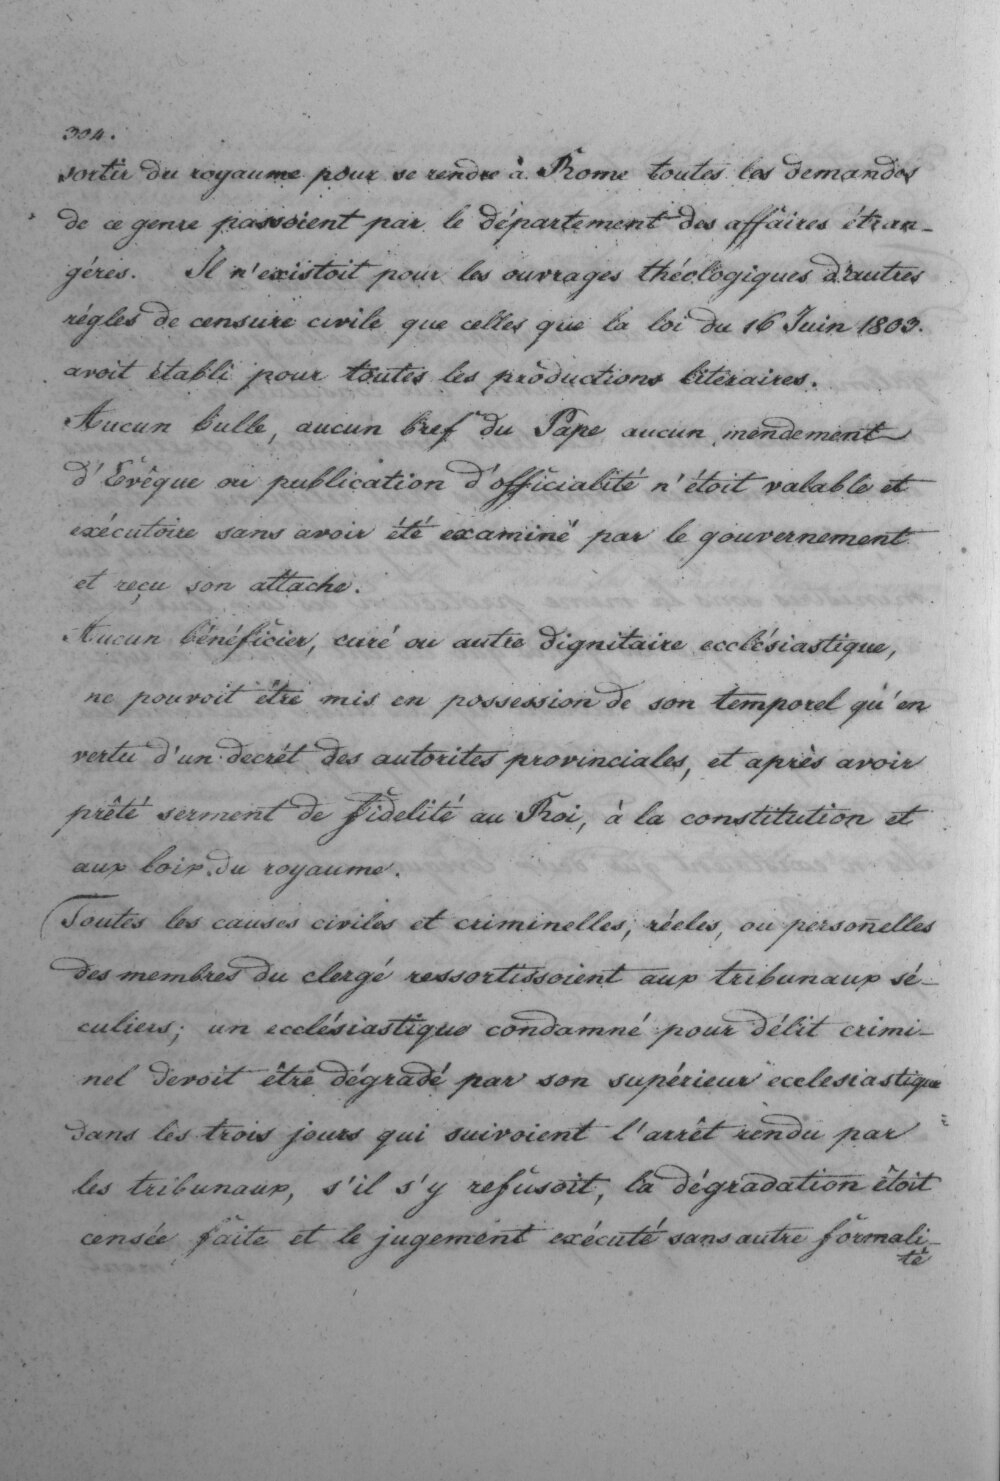 304.
sortir du royaume pour se rendre à Rome toutes les demandes
de ce genre passoient par le département des affaires étran-
géres. Il n'existoit pour les ouvrages théologiques d'autres
régles de censure civile que celles que la loi du 16 Juin 1803.
avoit établi pour toutes les productions litéraires.
Aucun bulle, aucun bref du Pape aucun mendement
d'Evêque ou publication d'officialité n'étoit valable et
exécutoire sans avoir été examiné par le gouvernement
et reçu son attache.
Aucun bénéficier, curé ou autre dignitaire ecclésiastique,
ne pouvoit être mis en possession de son temporel qu'en
vertu d'un decrét des autorites provinciales, et après avoir
prêté serment de fidelité au Roi, à la constitution et
aux loix du royaume.
Toutes les causes civiles et criminelles, réeles, ou personelles
des membres du clergé ressortissoient aux tribunaux sé-
culiers; un ecclésiastique condamné pour délit crimi-
nel devoit être dégradé par son supérieur ecclesiastique
dans les trois jours qui suivoient l'arrêt rendu par
les tribunaux, s'il s'y refusoit, la dégradation étoit
censée faite et le jugement exécuté sans autre formali-
té